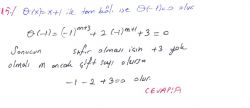 15-) Q(x)=x+1 ile tam böl. ise Q(-1)=0 olur.
Q(-1)=(-1)^{m+3} + 2(-1)^{m+1} + 3 = 0
Sonucun sıfır olması için +3 yok
olmalı m ancak çift sayı olursa
-1 - 2 + 3 = 0 olur.
CEVAP:A